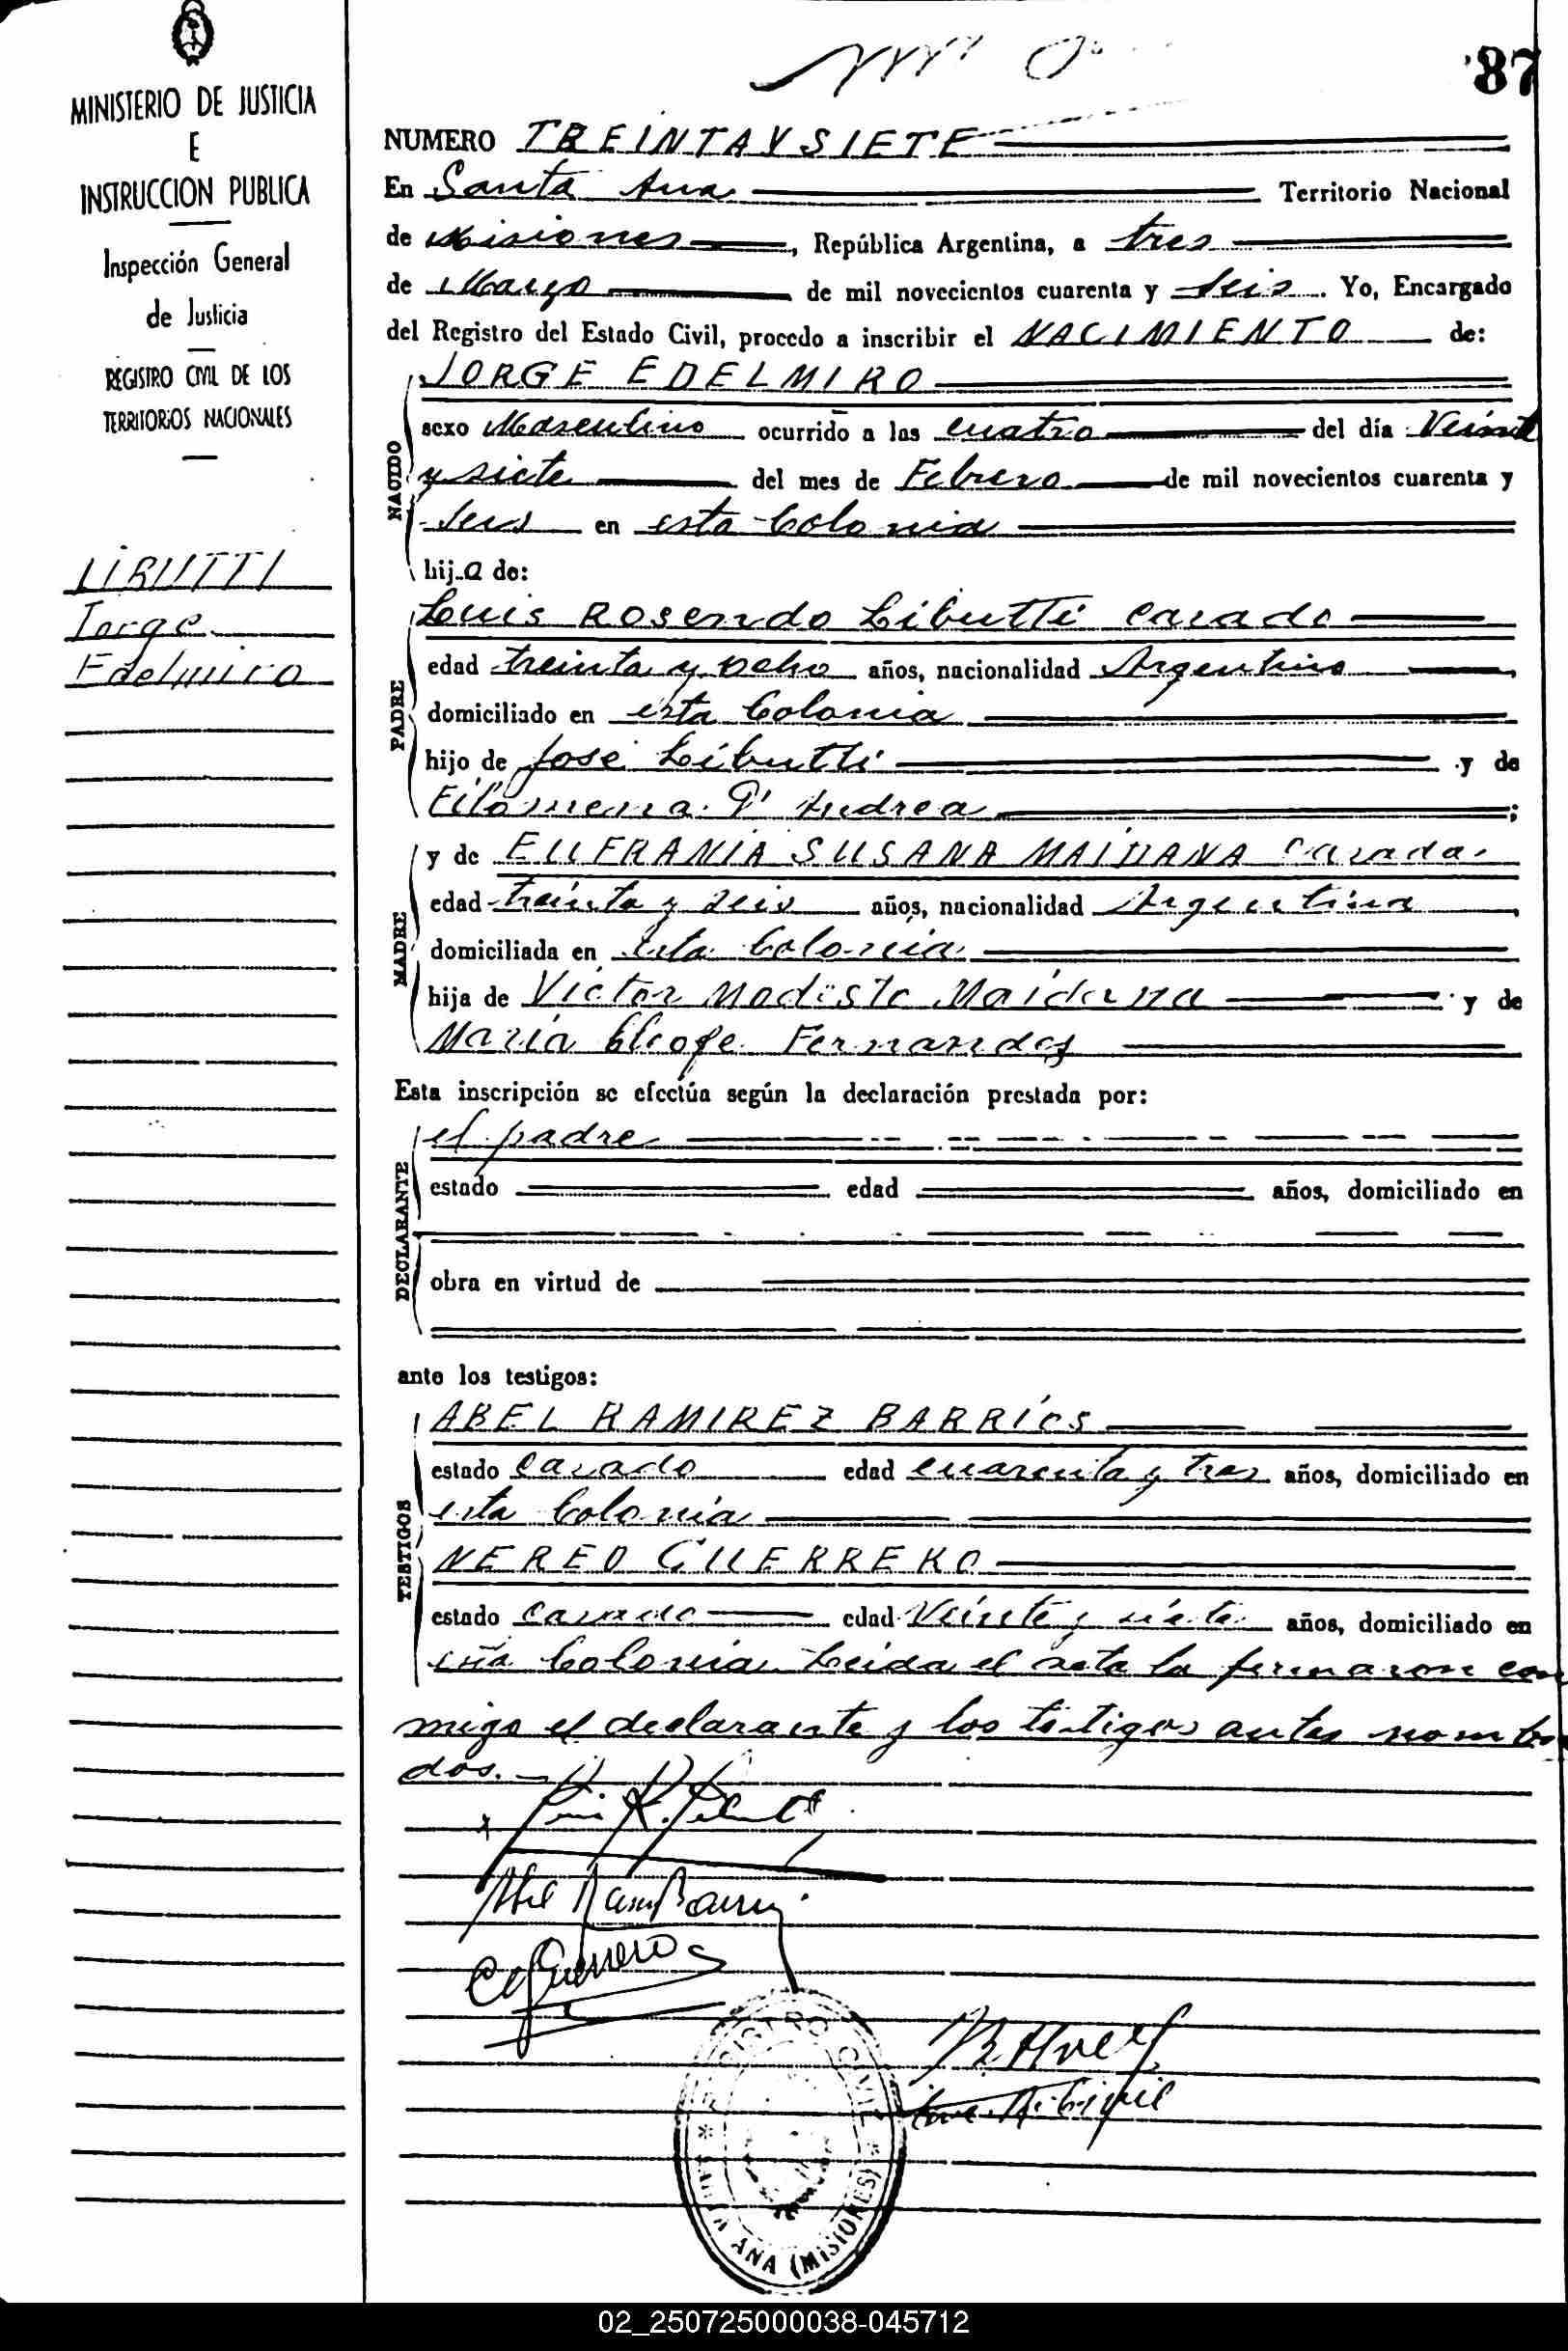 MINISTERIO DE JUSTICIA
E
INSTRUCCION PUBLICA
Inspección General
de Justicia
REGISTRO CIVIL DE LOS
TERRITORIOS NACIONALES
LIBUTTI
Jorge
Edelmiro
87
NUMERO TREINTA Y SIETE
En Santa Ana Territorio Nacional
de Misiones, República Argentina, a tres
de Marzo de mil novecientos cuarenta y seis. Yo, Encargado
del Registro del Estado Civil, procedo a inscribir el NACIMIENTO de:
NACIDO
JORGE EDELMIRO
sexo Masculino ocurrido a las cuatro del día Veinte
y siete del mes de Febrero de mil novecientos cuarenta y
seis en esta Colonia
hij_o de:
PADRE
Luis Rosendo Libutti casado
edad treinta y ocho años, nacionalidad Argentino,
domiciliado en esta Colonia
hijo de José Libutti y de
Filomena D'Andrea;
MADRE
y de EUFRANIA SUSANA MAIDANA casada.
edad treinta y seis años, nacionalidad Argentina,
domiciliada en esta Colonia
hija de Victor Modesto Maidana y de
María Cleofe Fernandez
Esta inscripción se efectúa según la declaración prestada por:
DECLARANTE
el padre
estado edad años, domiciliado en
obra en virtud de
ante los testigos:
TESTIGOS
ABEL RAMIREZ BARRIOS
estado casado edad cuarenta y tres años, domiciliado en
esta Colonia
NEREO GUERRERO
estado casado edad Veinte y siete años, domiciliado en
esta Colonia. Leida el acta la firmaron con
migo el declarante y los testigos antes nombra
dos.
REGISTRO CIVIL
SANTA ANA (MISIONES)
02_250725000038-045712